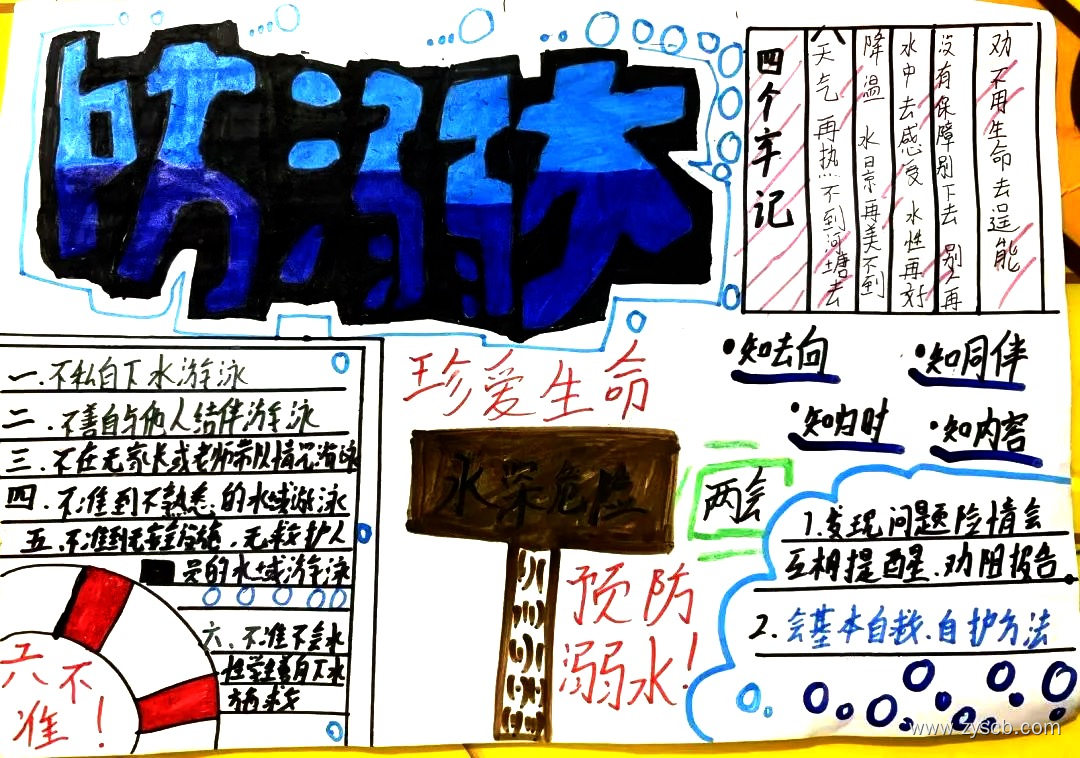 防溺水
四个牢记
天气再热不到河塘去
降温 水景再美不到
水中去感受 水性再好
没有保障别下去 别再
劝 不用生命去逞能
一.不私自下水游泳
二.不善自与他人结伴游泳
三.不在无家长或老师带队情况游泳
四.不准到不熟悉的水域游泳
五.不准到无安全设施,无救护人
员的水域游泳
六.不准不会水
性学生善自下水
施救
六不
准!
珍爱生命
水深危险
预防
溺水!
·知去向
·知同伴
·知归时
·知内容
两会
1.发现问题险情会
互相提醒.劝阻报告.
2.会基本自救.自护方法
www.zyscb.com